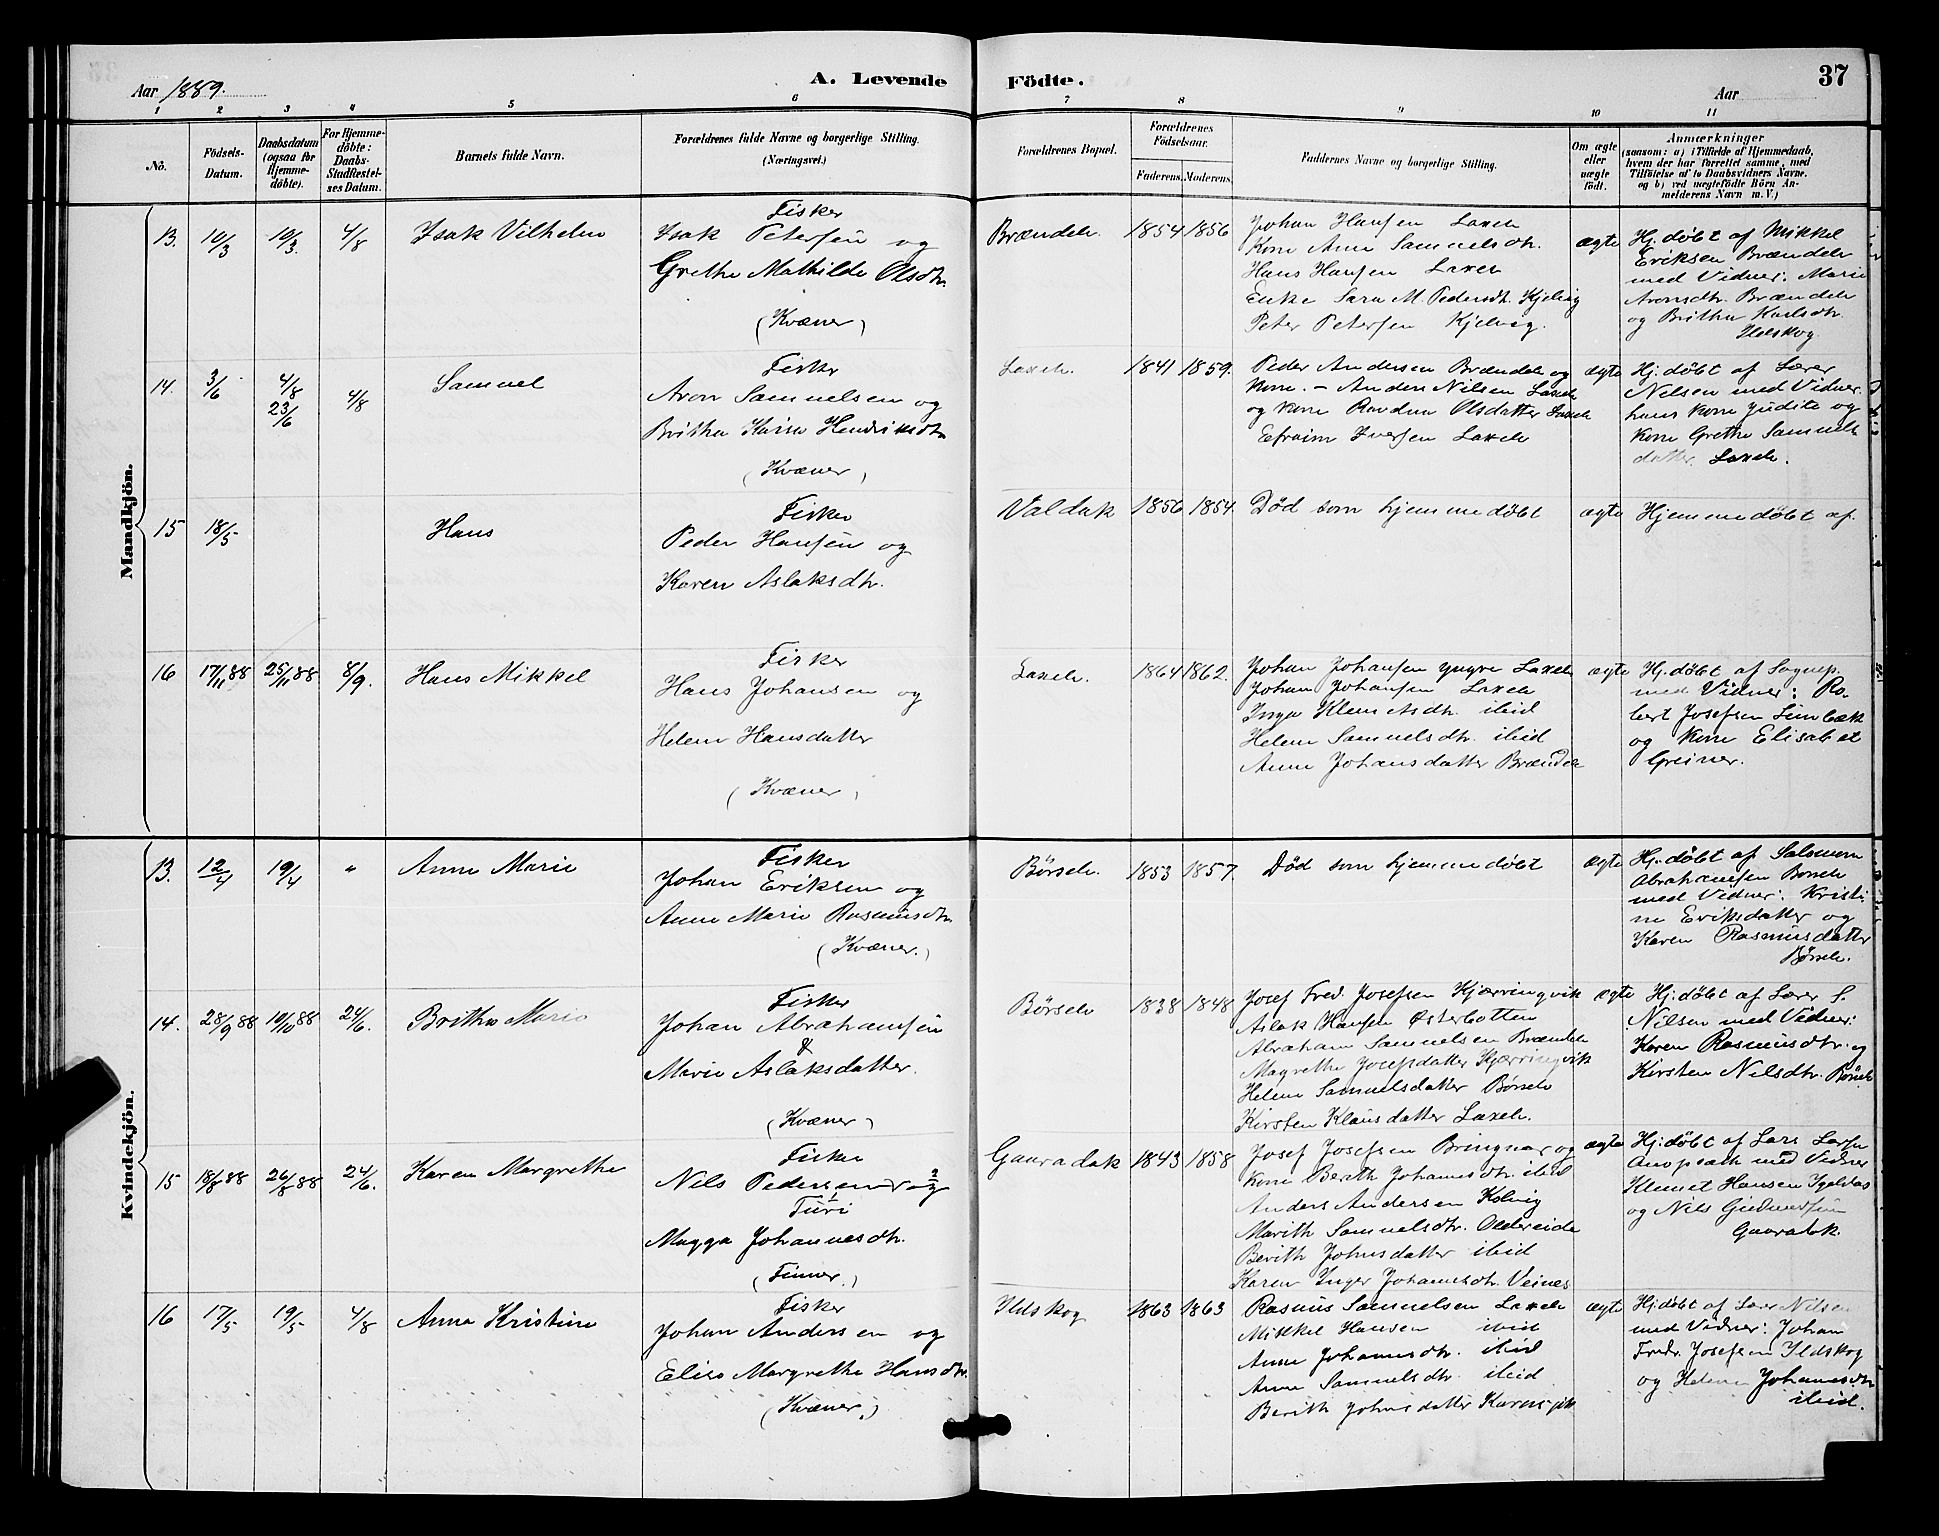 Aar 1889.
A. Levende Födte.
37
Aar
1 2 3 4 5 6 7 8 9 10 11
No.
Födsels-Datum.
Daabsdatum (ogsaa for Hjemmedöbte).
For Hjemmedöbte: Daabs-Stadfæstelses Datum.
Barnets fulde Navn.
Forældrenes fulde Navne og borgerlige Stilling. (Næringsvei.)
Forældrenes Bopæl.
Forældrenes Födselsaar.
Faderens. Moderens.
Faddernes Navne og borgerlige Stilling.
Om ægte eller uægte födt.
Anmærkninger
(saasom: a) i Tilfælde af Hjemmedaab,
hvem der har forrettet samme, med
Tilföielse af to Daabsvidners Navne.
og b) ved uægtefödte Börn An-
melderens Navn m. V.)
Mandkjön.
13. 10/3 10/3. 4/8 Isak Vilhelm
Fisker
Isak Petersen og
Grethe Mathilde Olsdtr.
(Kvæner)
Brændelv. 1854 1856
Johan Hansen Laxelv
Kone Anne Samuelsdtr.
Hans Hansen Laxelv
Enke Sara M. Pedersdtr. Kjelvig
Peter Petersen Kjelvig.
ægte
Hj. døbt af Mikkel
Eriksen Brændelv
med Vidner: Marie
Aronsdtr. Brændelv
og Britha Karlsdtr.
Ildskog.
14. 3/6 4/8 23/6 4/8 Samuel
Fisker
Aron Samuelsen og
Britha Kaisa Hendriksdtr
(Kvæner)
Laxelv. 1841 1859.
Peder Andersen Brændelv og
Kone. - Anders Nilsen Laxelv
og Kone Olsdatter Laxelv
Efraim Iversen Laxelv
ægte
Hj. døbt af Lærer
Nilsen med Vidner.
hans Kone Judite og
Kone Grethe Samuels
datter. Laxelv.
15 18/5 Hans
Fisker
Peder Hansen og
Karen Aslaksdtr.
Valdak 1856 1854.
Død som hjemmedøbt
ægte
Hjemmedøbt af
16 17/11 88 25/11 88 8/9. Hans Mikkel
Fisker
Hans Johansen og
Helene Hansdatter
(Kvæner)
Laxelv. 1864 1862.
Johan Johansen yngre Laxelv
Johan Johansen Laxelv
Inga Klemetsdtr. ibid
Helene Samuelsdtr. ibid
Anne Johansdatter Brændelv
ægte
Hj. døbt af Sognep.
med Vidner: Ro-
bert Josefsen
og Kone Elisabet
Greiner.
Kvindekjön.
13. 12/4 19/4 " Anne Marie
Fisker
Johan Eriksen og
Anne Marie Rasmusdtr.
(Kvæner.)
Børselv. 1853 1857.
Død som hjemmedøbt
ægte
Hj. døbt af Salomon
Abrahamsen Børselv
med Vidner: Kristi-
ne Eriksdatter og
Karen Rasmusdatter
Børselv.
14. 28/9 88 19/10 88 24/6. Britha Marie
Fisker
Johan Abrahamsen
&
Marie Aslaksdatter.
(Kvæner)
Børselv 1838 1848
Josef Fred. Josefsen Kjærringvik
Aslak Hansen Østerbotten
Abraham Samuelsen Brændelv
Magrethe Josefsdatter Kjærringvik
Helene Samuelsdatter Børselv
Kirsten Klausdatter Laxelv.
ægte
Hj. døbt af Lærer S.
Nilsen med Vidner:
Karen Rasmusdtr. og
Kirsten Nilsdtr. Børselv
15 18/8 88 26/8 88 24/6. Karen Margrethe
Fisker
Nils Pedersen og
Turi
Magga Johannesdtr.
(Finner.)
Gaaradak 1843 1858
Josef Josefsen Bringnæs og
Kone Berith Johannesdtr. ibid
Anders Andersen Kolvig
Marith Samuelsdtr. Oldereide
Berith Johnsdatter ibid
Karen Inger Johannesdtr. Veines
ægte
Hj. døbt af Lars Larsen
med Vidner
Klemet Hansen
og Nils
Gaaradak.
16 17/5 19/5 4/8 Anne Kristine
Fisker
Johan Andersen og
Elisa Margrethe Hansdtr.
(Kvæner.)
Ildskog 1863 1863
Rasmus Samuelsen Laxelv
Mikkel Hansen ibid
Anne Johannesdtr. ibid
Anne Samuelsdtr. ibid
Berith Johnsdatter
ægte
Hj. døbt af Lærer Nilsen
med Vidner: Johan
Fredr. Josefsen Ildskog
og Helene Johannesdtr
ibid.